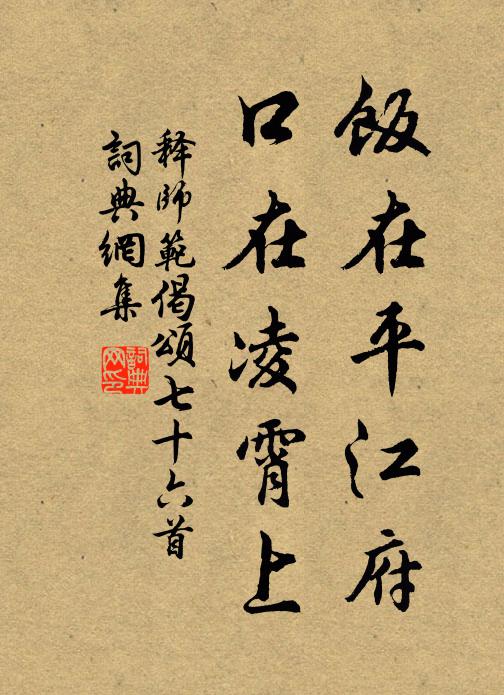 飯在平江府
口在凌霄上
釋師範偈頌七十六首
詞典網集
詞典網印